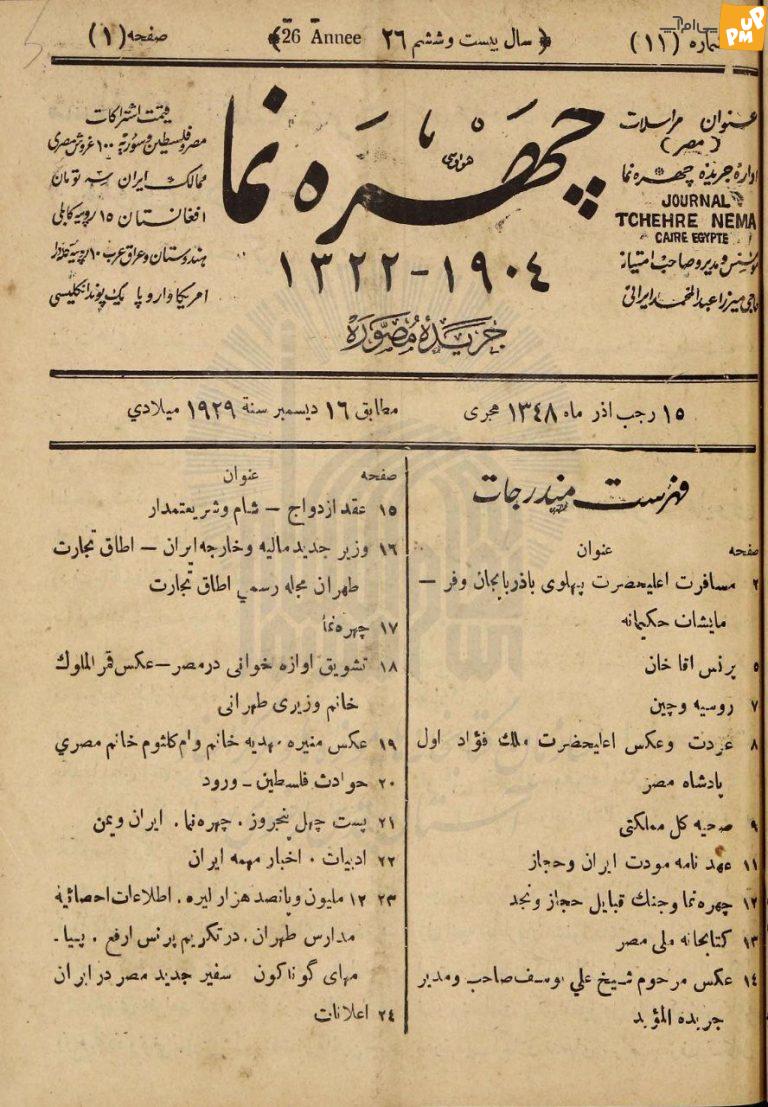 شماره (۱۱)
﴿ سال بیست وششم ۲۶ 26 Annee ﴾
صفحه (۱)
عنوان مراسلات
(مصر)
ادارهٔ جریدهٔ چهره نما
JOURNAL
TCHEHRE NEMA
CAIRE EGYPTE
مؤسس ومدیر وصاحب امتیاز
حاجی میرزا عبدالمحمد ایرانی
چهره نما
۱۳۲۲-۱۹۰٤
جَرِیدَهٔ مُصَوَّرَه
قیمت اشتراکات
مصر وفلسطین وسوریه ۱۰۰ غروش مصری
ممالک ایران سه تومان
افغانستان ۱۵ روپیه کابلی
هندوستان وعراق عرب ۱۰ روپیه
امریکا واروپا یک پوند انکلیسی
۱۵ رجب اذر ماه ۱۳٤۸ هجری
مطابق ۱٦ دیسمبر سنة ۱۹۲۹ میلادي
فهرست مندرجات
صفحه عنوان
۲ مسافرت اعلیحضرت پهلوی باذربایجان وفر —
مایشات حکیمانه
۵ پرنس اقا خان
۷ روسیه وچین
۸ عودت وعکس اعلیحضرت ملك فؤاد اول
پادشاه مصر
۹ صحیه کل مملکتی
۱۱ عهد نامه مودت ایران وحجاز
۱۲ چهره نما وجنك قبایل حجاز ونجد
۱۳ کتابخانه ملی مصر
۱٤ عکس مرحوم شیخ علي یوسف صاحب ومدیر
جریده المؤید
صفحه عنوان
۱۵ عقد ازدواج — شام وشریعتمدار
۱٦ وزیر جدید مالیه وخارجه ایران — اطاق تجارت
طهران مجله رسمي اطاق تجارت
۱۷ چهره نما
۱۸ تشویق اوازه خوانی در مصر — عکس قمر الملوك
خانم وزیری طهرانی
۱۹ عکس منیره مهدیه خانم وام کلثوم خانم مصري
۲۰ حوادث فلسطین — ورود
۲۱ پست چهل پنجروز . چهره نما . ایران ویمن
۲۲ ادبیات . اخبار مهمه ایران
۲۳ ۱۲ ملیون وپانصد هزار لیره . اطلاعات احصائیه
مدارس طهران . در تکریم پرنس ارفع . پیا.
مهای گوناکون سفیر جدید مصر در ایران
۲٤ اعلانات